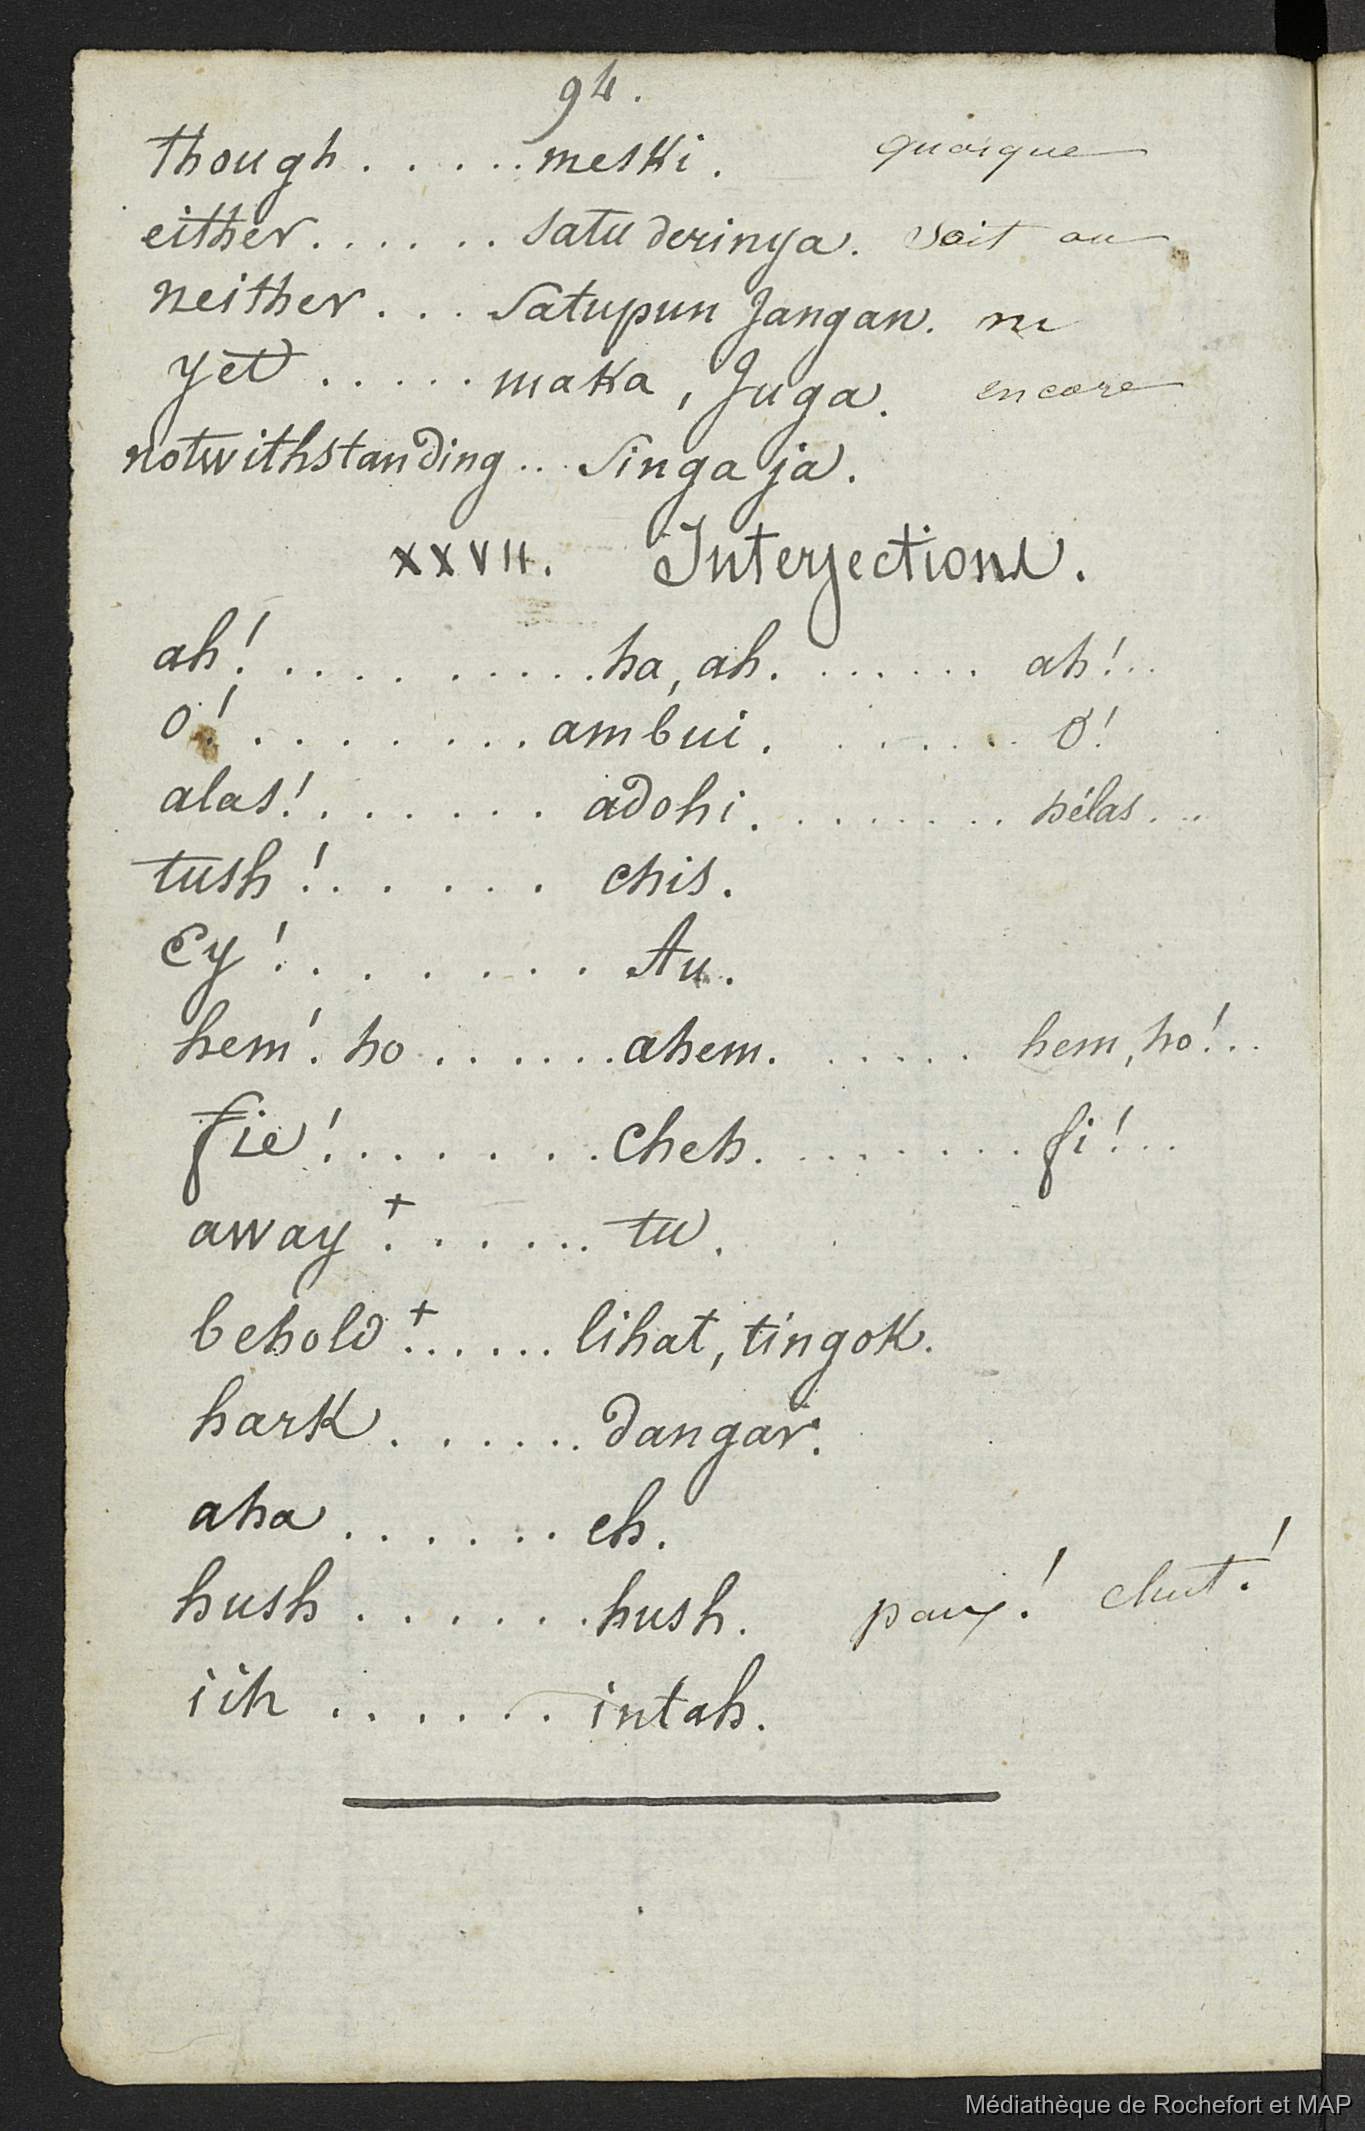 94.
though . . . . . meski. quoique
either . . . . . . satu derinya. soit ou
neither . . . Satupun Jangan. ni
yet . . . . . maka, Juga. encore
notwithstanding . . . Singa ja.
XXVII. Interjections.
ah! . . . . . . . . . ha, ah. . . . . . . ah! . .
o! . . . . . . . . ambui. . . . . . . O!
alas! . . . . . . adohi. . . . . . . . hélas . . .
tush! . . . . . . chis.
Ey! . . . . . . . Au.
hem! ho . . . . . . ahem. . . . . . hem, ho! . .
fie! . . . . . . . cheh. . . . . . . . fi! . . .
away + . . . . . . tu.
behold + . . . . . . lihat, tingok.
hark . . . . . . dangar.
aha . . . . . . eh.
hush . . . . . . hush. paix! chut!
iih . . . . . . intah.
Médiathèque de Rochefort et MAP